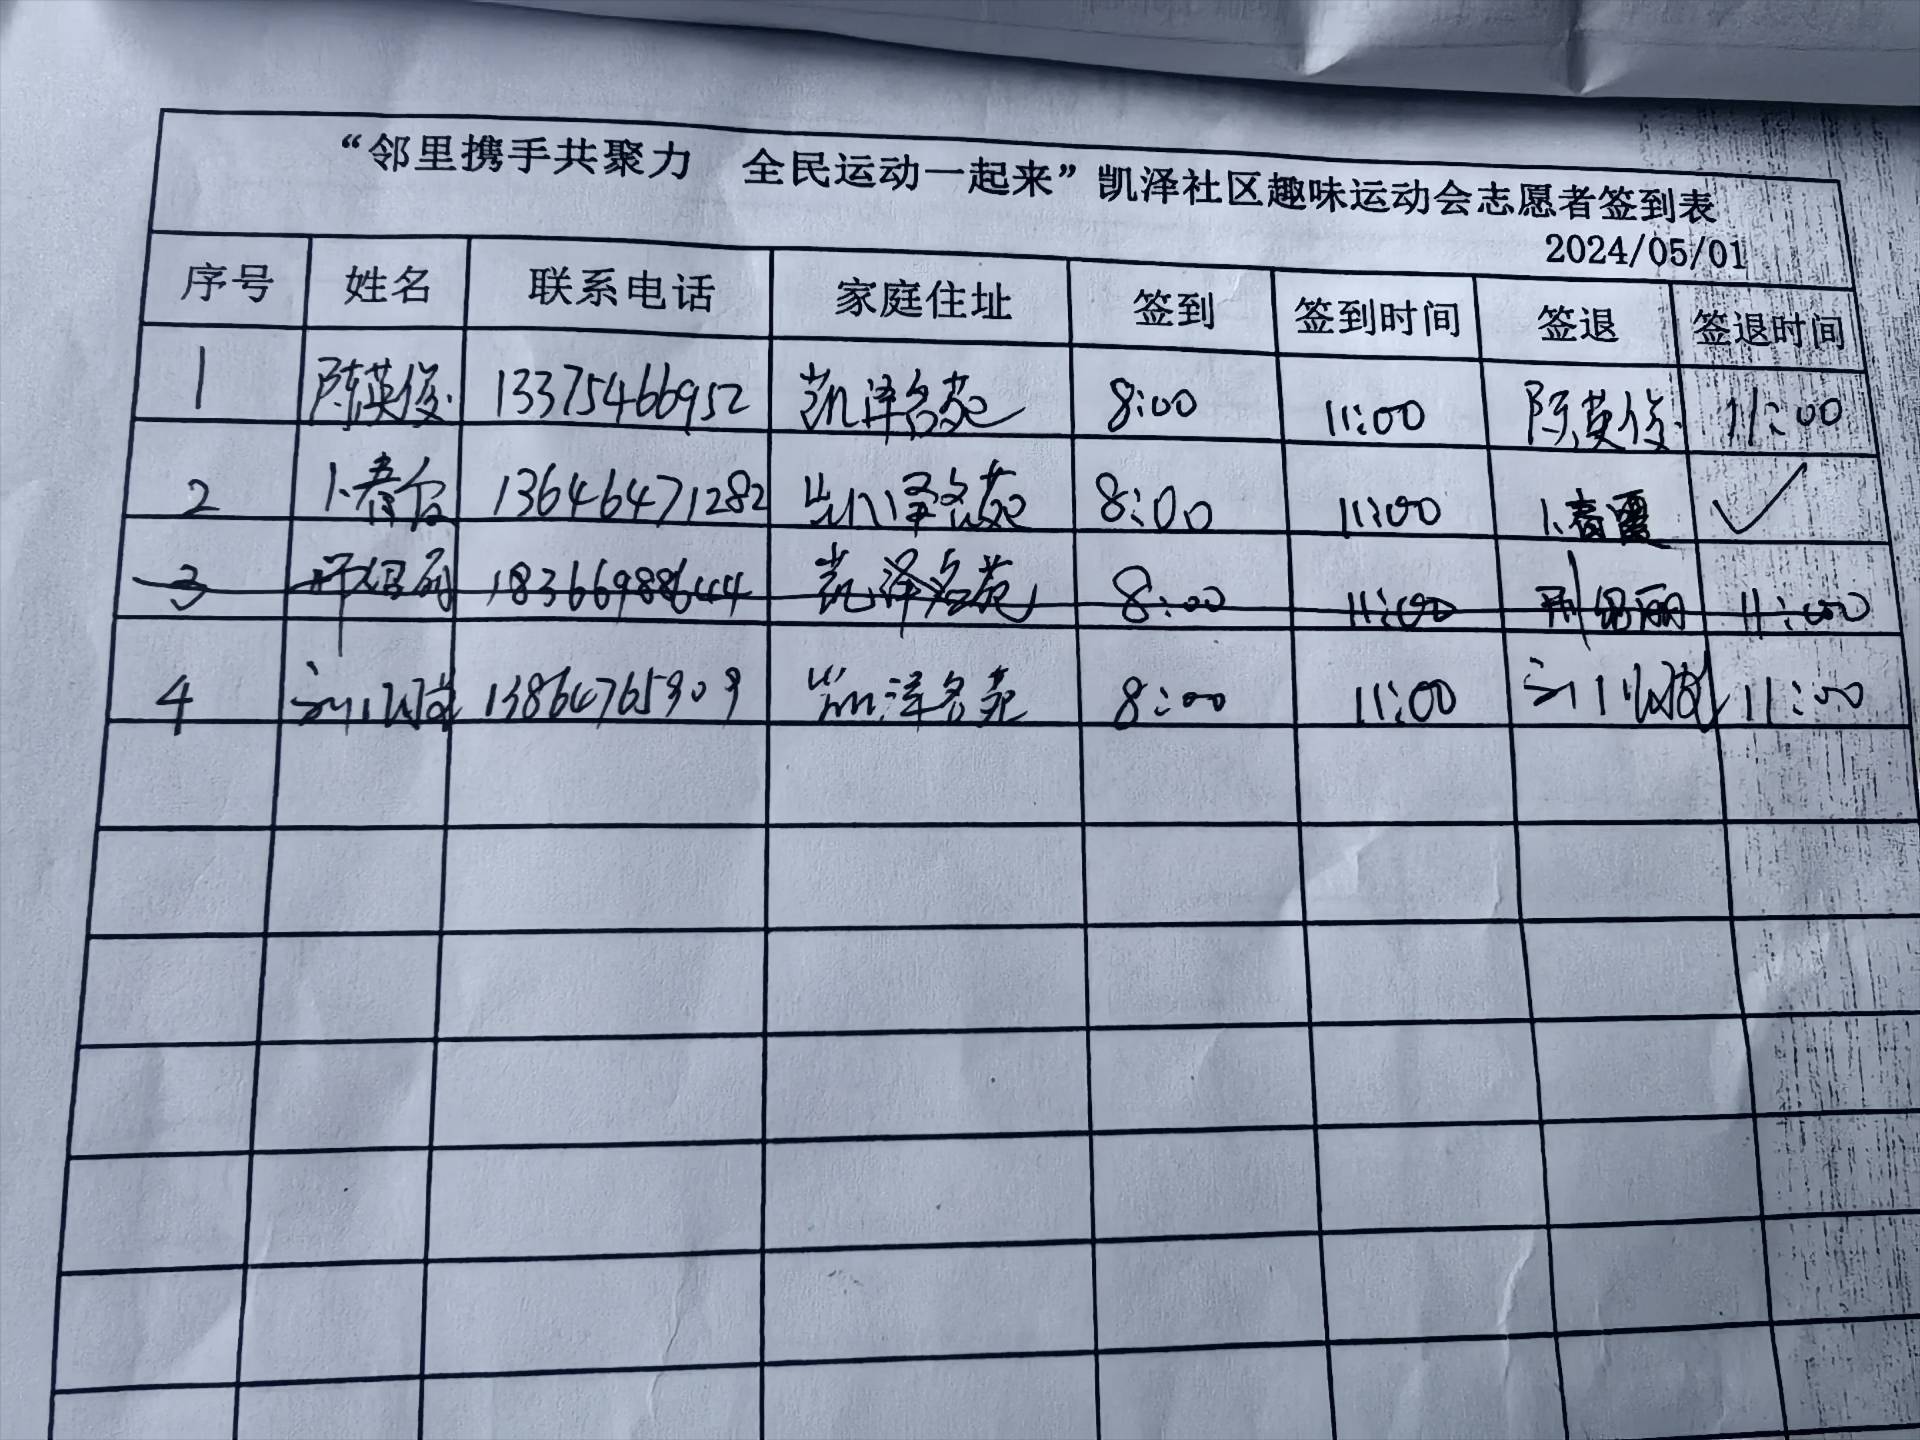 “邻里携手共聚力 全民运动一起来”凯泽社区趣味运动会志愿者签到表
2024/05/01
序号 姓名 联系电话 家庭住址 签到 签到时间 签退 签退时间
1 陈英俊 13375466952 凯泽名苑 8:00 11:00 陈英俊 11:00
2 13646471282 凯泽名苑 8:00 11:00 ✓
3 18366988644 凯泽名苑 8:00 11:00 11:00
4 13864765909 凯泽名苑 8:00 11:00 11:00